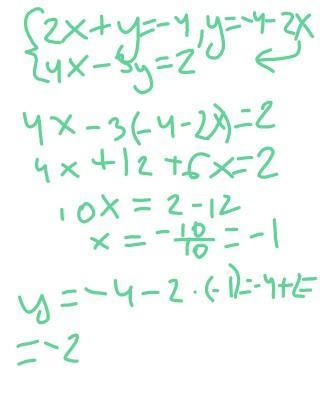 {2x+y=-4, y=-4-2x
{4x-3y=2
4x-3(-4-2x)=2
4x+12+6x=2
10x=2-12
x=-10/10=-1
y=-4-2·(-1)=-4+2=
=-2